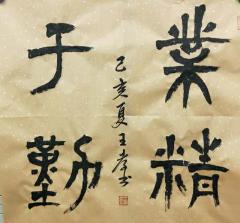 業精
于勤
己亥夏王书